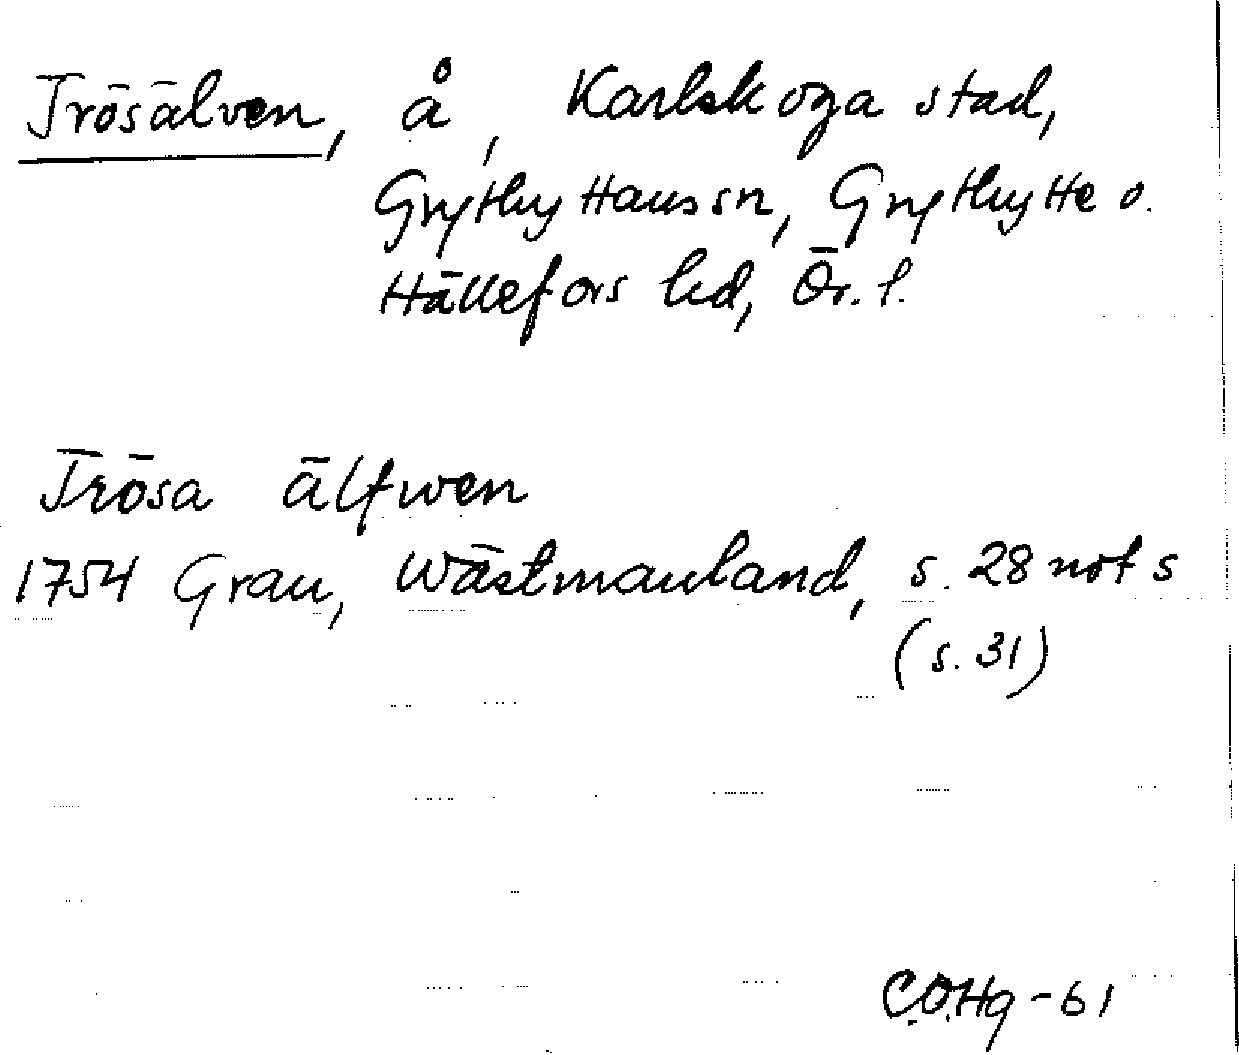 Trösälven, å, Karlskoga stad,
Grythyttans sn, Grythytte o.
Hällefors bd, Ör. l.
Trösa älfwen
1754 Grau, Wästmanland, s. 28 not s
(s. 31)
C.O.Hg-61